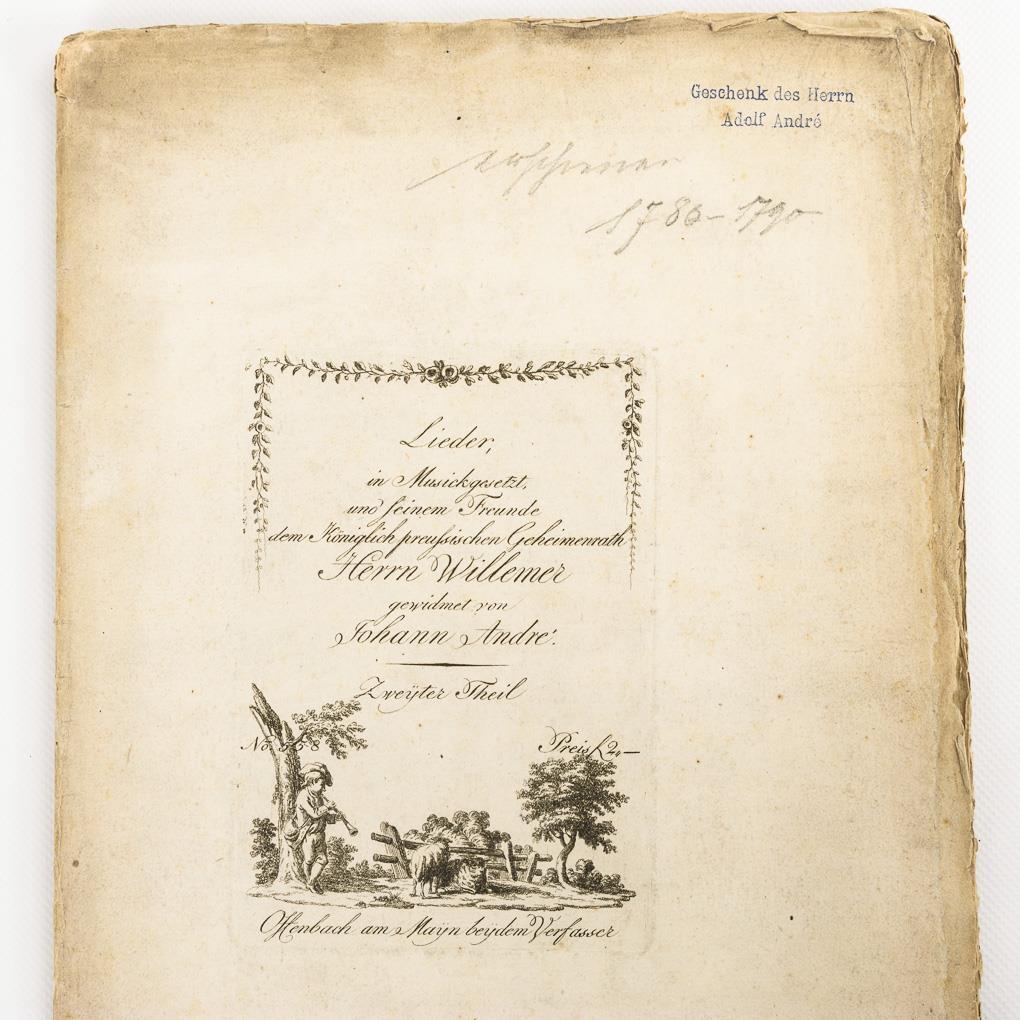 Geschenk des Herrn
Adolf André
erschienen
1786-1790
Lieder,
in Musick gesetzt,
und seinem Freunde
dem Königlich preussischen Geheimenrath
Herrn Willemer
gewidmet von
Johann André.
Zweÿter Theil
No.
Preis f 2,—
Offenbach am Maÿn beÿ dem Verfasser